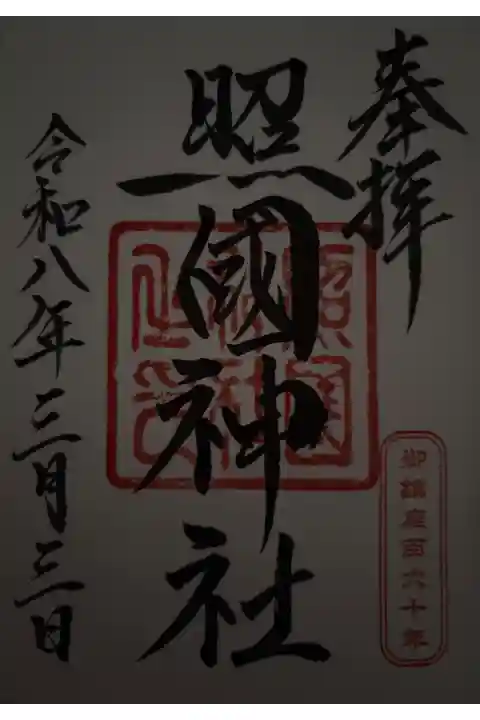 奉拝
照國神社
令和八年三月三日
御鎮座百六十年